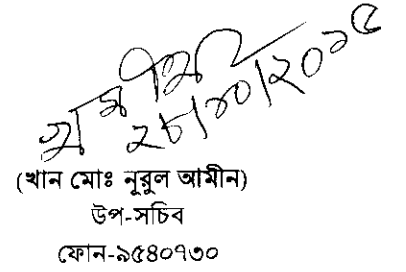 ২৮/১০/২০১৫
(খান মোঃ নূরুল আমীন)
উপ-সচিব
ফোন-৯৫৪০৭৩০